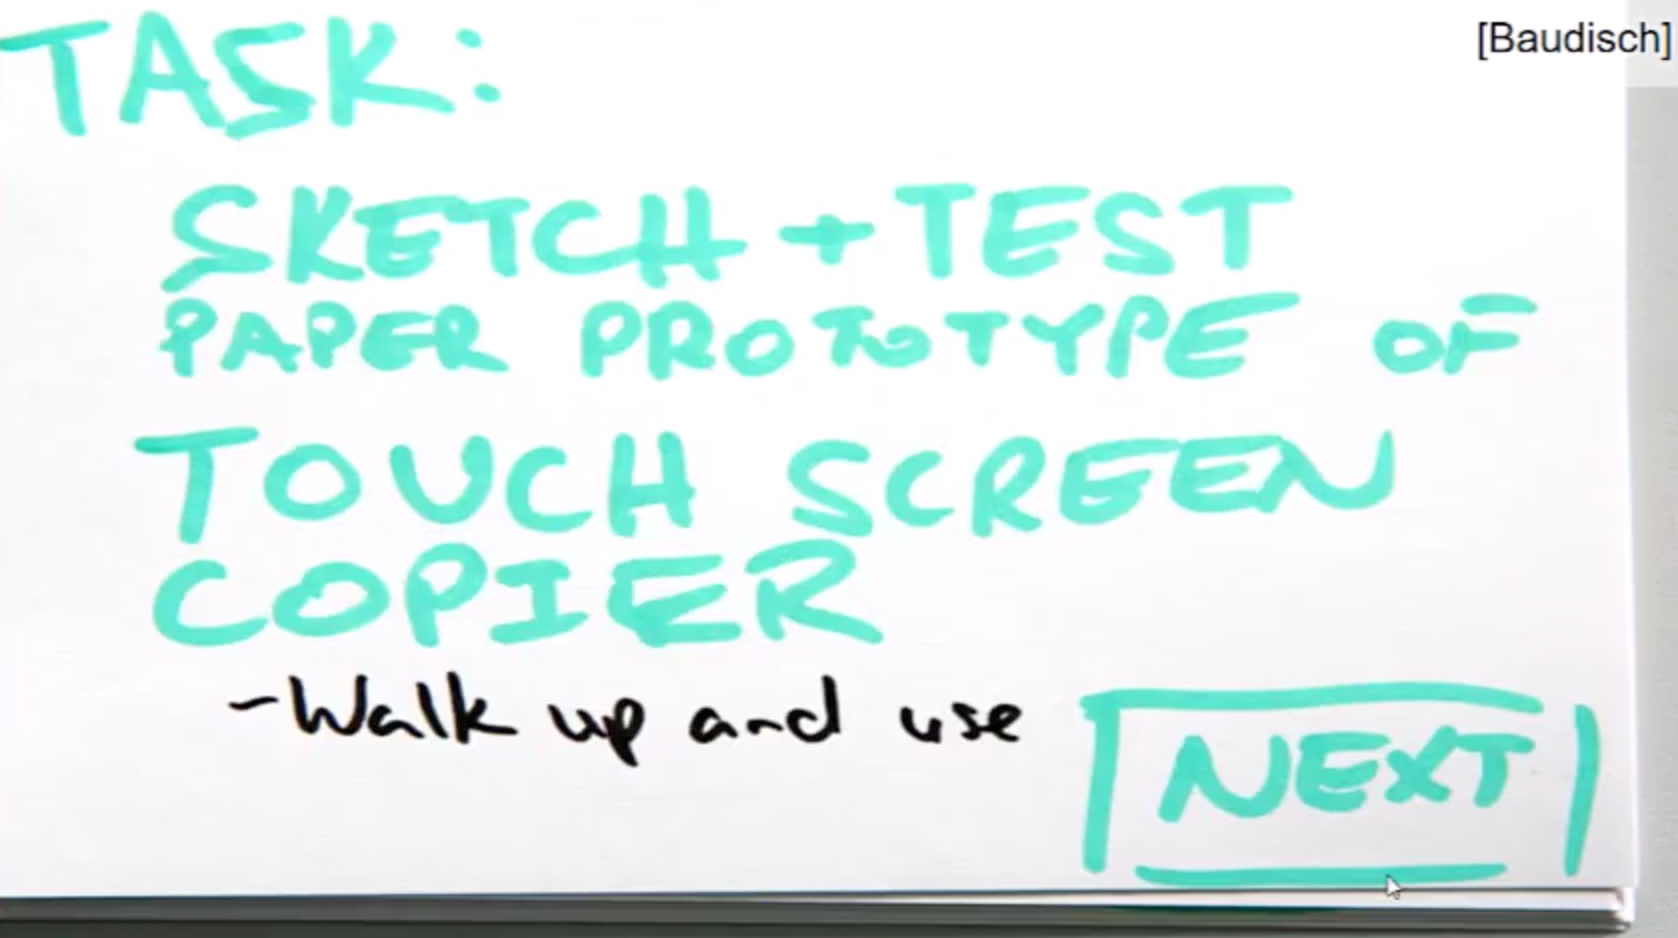 [Baudisch]
TASK:
SKETCH + TEST
PAPER PROTOTYPE OF
TOUCH SCREEN
COPIER
- Walk up and use
NEXT